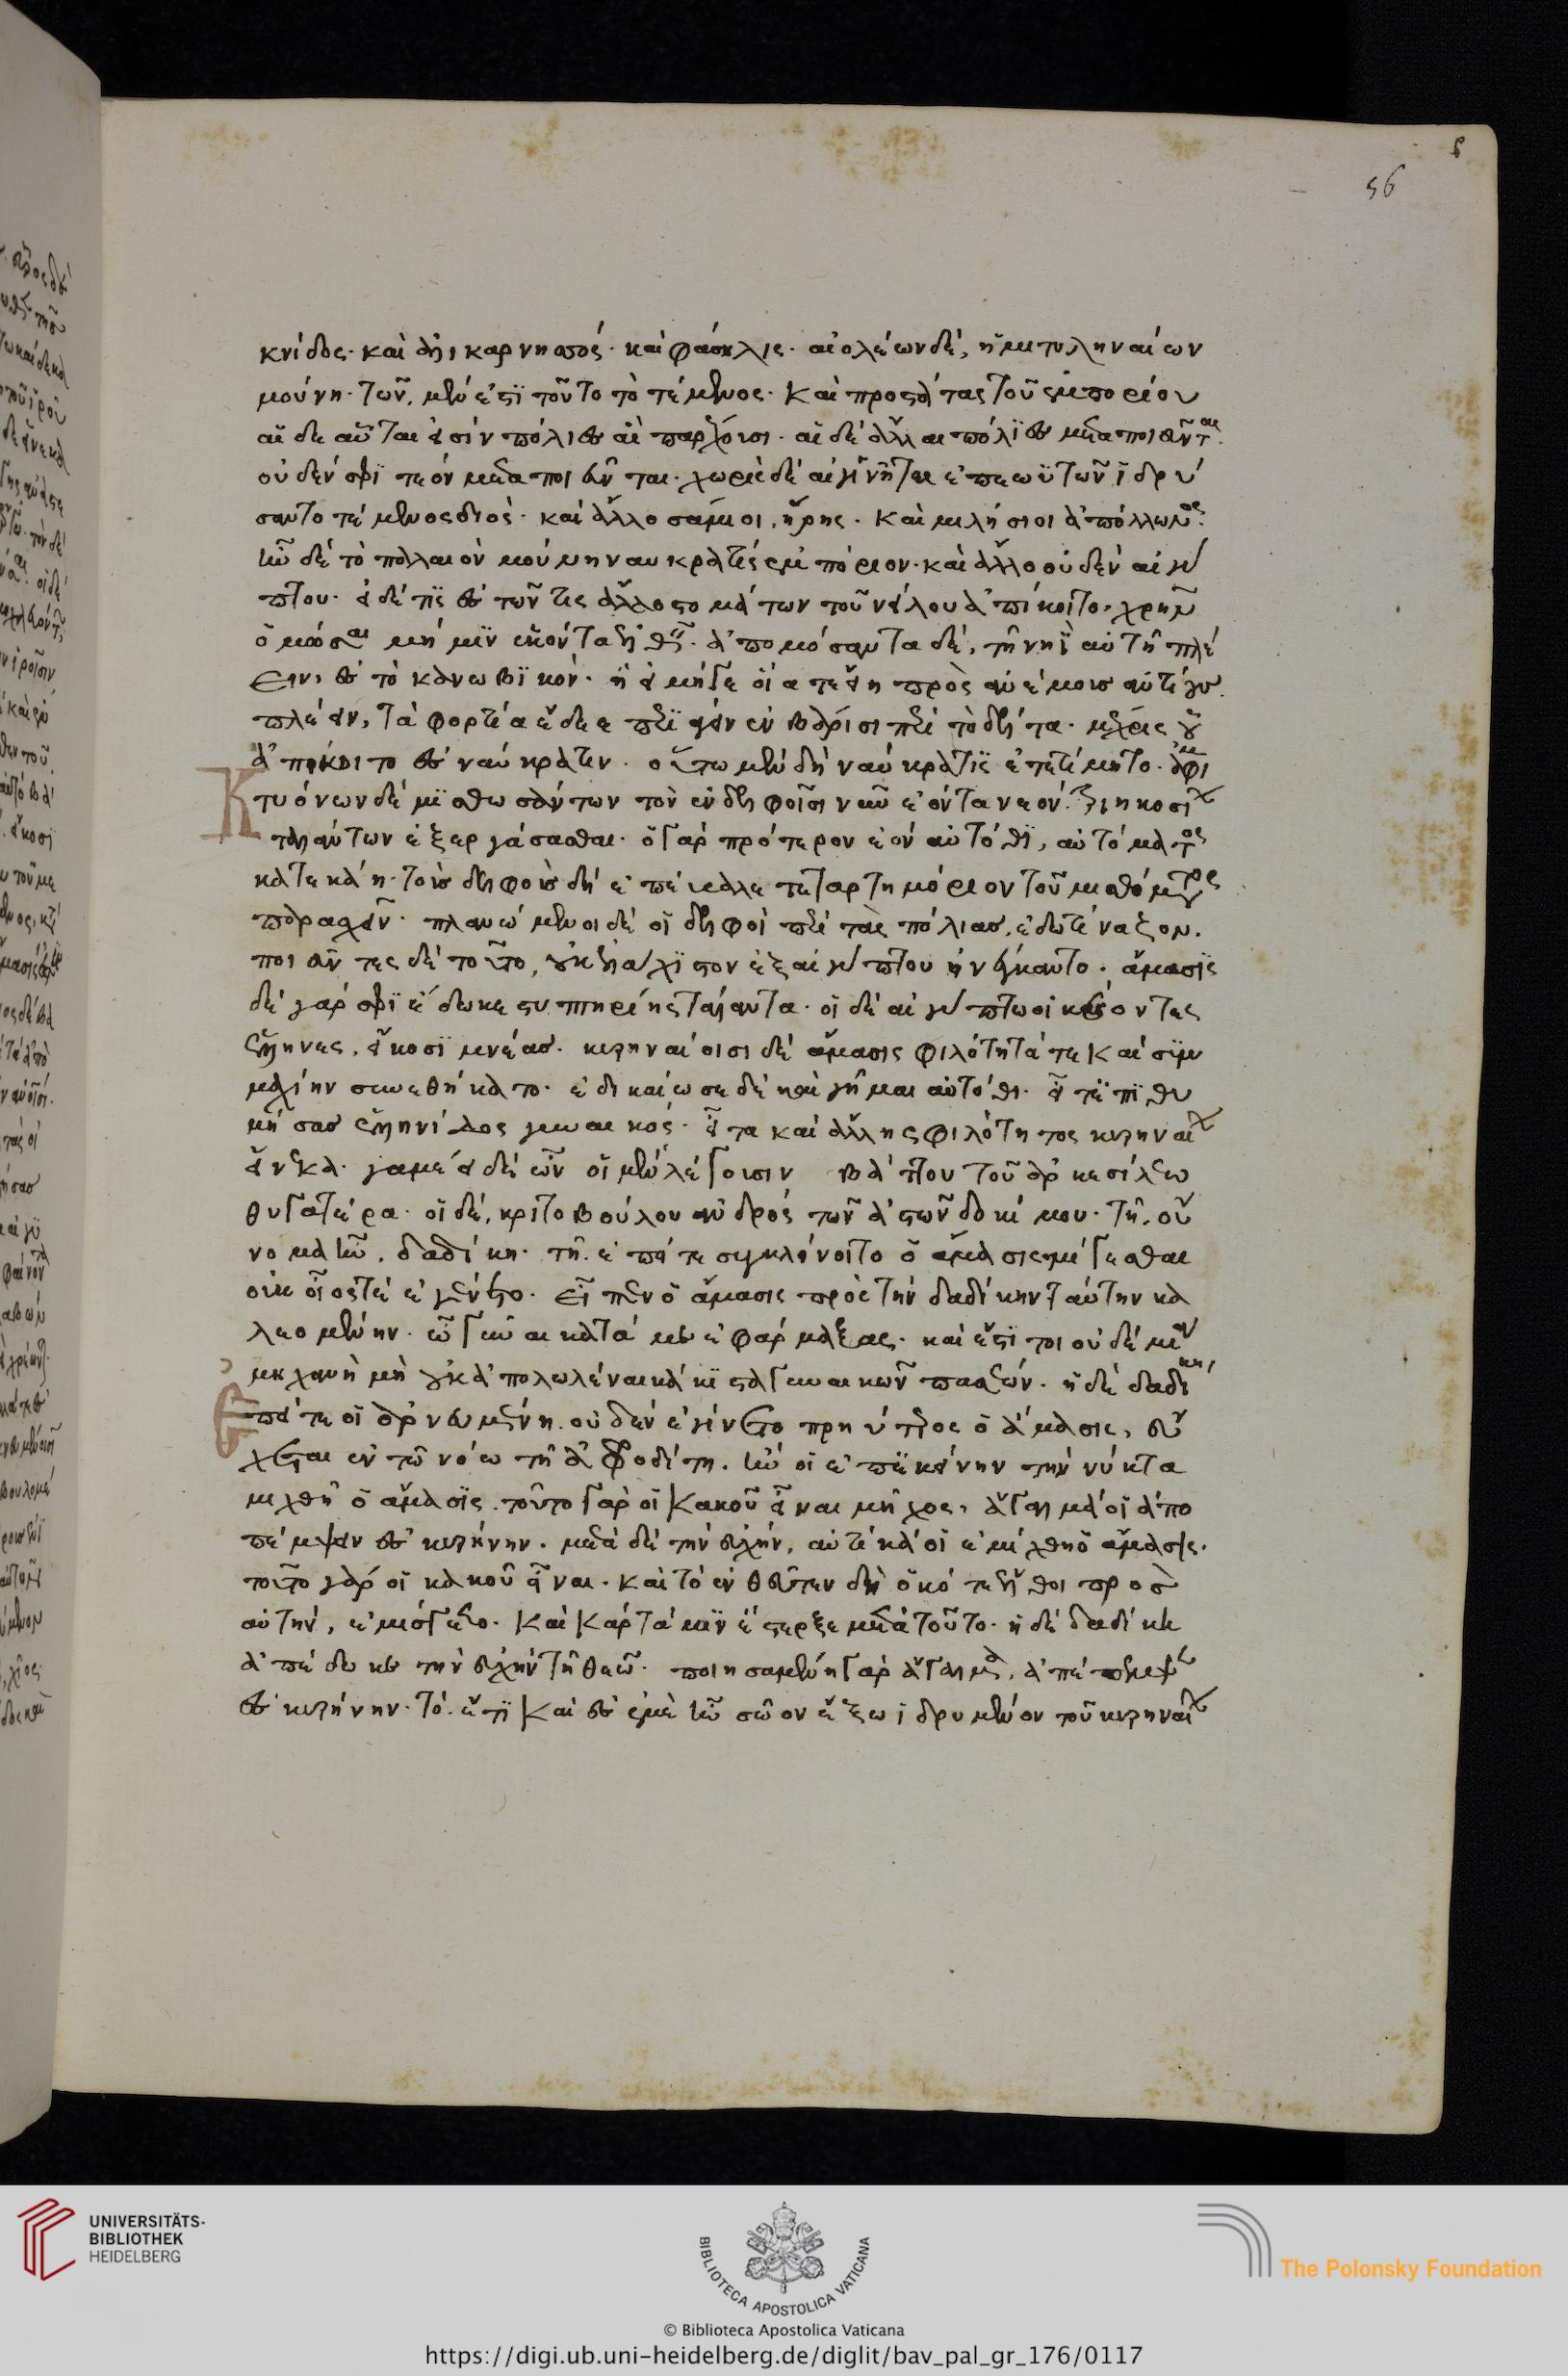 56
κνίδος· καὶ ἁλικαρνησσός· καὶ φάσηλις· αἰολέων δὲ, ἡ μιτυληναίων
μούνη· τῶν, μέν ἐστι τοῦτο τὸ τέμενος· Καὶ προστάτας τοῦ ἐμπορίου
αἵδε αὗται εἰσὶν πόλεις αἱ παρέχουσι· αἱ δὲ ἄλλαι πόλις μεταποιεῦνται
οὐδέν σφι μετεὸν μεταποιεῦνται· χωρὶς δὲ αἰγινῆται ἐπ' ἑωϋτῶν ἱδρύ
σαντο τέμενος διός· καὶ ἄλλο σάμιοι, ἥρης· Καὶ μιλήσιοι ἀπόλλωνος·
ἦν δὲ τὸ παλαιὸν μούνη ναυκρατὶς ἐμπόριον· καὶ ἄλλο οὐδὲν αἰγύ
πτου· εἰ δέ τις εἰς τῶν τις ἄλλο στομάτων τοῦ νείλου ἀπίκοιτο, χρῆν
ὀμόσαι μὴ μὲν ἑκόντα ἐλθεῖν· ἀπομόσαντα δὲ, τῇ νηῒ αὐτῇ πλέ
ειν, εἰς τὸ κανωβικόν· ἢ εἰ μή γε οἷά τε εἴη πρὸς ἀνέμους ἀντίους
πλέειν, τὰ φορτία ἔδεε περιάγειν ἐν βάρισι περὶ τὸ δέλτα· μέχρις οὗ
ἀπίκοιτο εἰς ναύκρατιν· οὕτω μὲν δὴ ναύκρατις ἐτετίμητο· ἀμφι
Κτυόνων δὲ μισθωσάντων τὸν ἐν δελφοῖσι νῦν ἐόντα νεὸν· τριηκοσίων
ταλάντων ἐξεργάσασθαι· ὁ γὰρ πρότερον ἐὼν αὐτόθι, αὐτόματος
κατεκάη· τοὺς δελφοὺς δὴ ἐπέβαλε τεταρτημόριον τοῦ μισθώματος
παρασχεῖν· πλανώμενοι δὲ οἱ δελφοὶ περὶ τὰς πόλιας, ἐδωτίναζον.
ποιεῦντες δὲ τοῦτο, οὐκ ἐλάχιστον ἐξ αἰγύπτου ἠνείκαντο· ἄμασις
δὲ γάρ σφι ἔδωκε στυπτηρίης τάλαντα· οἱ δὲ αἰγύπτω οἰκέοντες
ἕλληνες, εἴκοσι μνέας· κυρηναίοισι δὲ ἄμασις φιλότητά τε Καὶ συμ
μαχίην συνεθήκατο· ἐδικαίωσε δὲ καὶ γῆμαι αὐτόθι· εἴτ' ἐπιθυ
μήσας ἑλληνίδος γυναικός· εἴτε καὶ ἄλλης φιλότητος κυρηναίων
εἵνεκα· γαμέει δὲ ὦν οἱ μὲν λέγουσιν βάττου τοῦ ἀρκεσίλεω
θυγατέρα· οἱ δὲ, κριτοβούλου ἀνδρὸς τῶν ἀστῶν δοκίμου· τῇ, οὔ
νομα ἦν, λαδίκη· τῇ ἐπεί τε συγκλίνοιτο ὁ ἄμασις, μίσγεσθαι
οὐκ οἷός τε ἐγένετο· εἶπεν ὁ ἄμασις πρὸς τὴν λαδίκην ταύτην κα
λεομένην· ὦ γύναι κατά με ἐφάρμαξας· καὶ ἔστι τοι οὐδεμία
μηχανὴ μὴ οὐκ ἀπολωλέναι κάκιστα γυναικῶν πασέων· ἡ δὲ λαδίκη,
Επεί τε οἱ ἀρνευμένη οὐδὲν ἐγίνετο πρηΰτερος ὁ ἄμασις, εὔ
χεται ἐν τῷ νόω τῇ ἀφροδίτη, ἤν οἱ ἐπ' ἐκείνην τὴν νύκτα
μιχθῇ ὁ ἄμασις τοῦτο γάρ οἱ Κακοῦ εἶναι μῆχος, ἄγαλμά οἱ ἀπο
πέμψειν εἰς κυρήνην· μετὰ δὲ τὴν εὐχὴν, αὐτίκα οἱ ἐμίχθη ὁ ἄμασις·
τοῦτο γάρ οἱ κακοῦ εἶναι· καὶ τὸ ἐνθεῦτεν δὴ ὁκότε ἔλθοι πρὸς
αὐτὴν, ἐμίσγετο· Καὶ Κάρτα μιν ἔστερξε μετὰ τοῦτο· ἡ δὲ λαδίκη
ἀπέδωκε τὴν εὐχὴν τῇ θεῷ· ποιησαμένη γὰρ ἄγαλμα, ἀπέπεμψεν
εἰς κυρήνην· τὸ, ἔτι Καὶ εἰς ἐμὲ ἦν σῶον ἔξω ἱδρυμένον τοῦ κυρηναίων
UNIVERSITÄTS-
BIBLIOTHEK
HEIDELBERG
BIBLIOTECA APOSTOLICA VATICANA
The Polonsky Foundation
© Biblioteca Apostolica Vaticana
https://digi.ub.uni-heidelberg.de/diglit/bav_pal_gr_176/0117